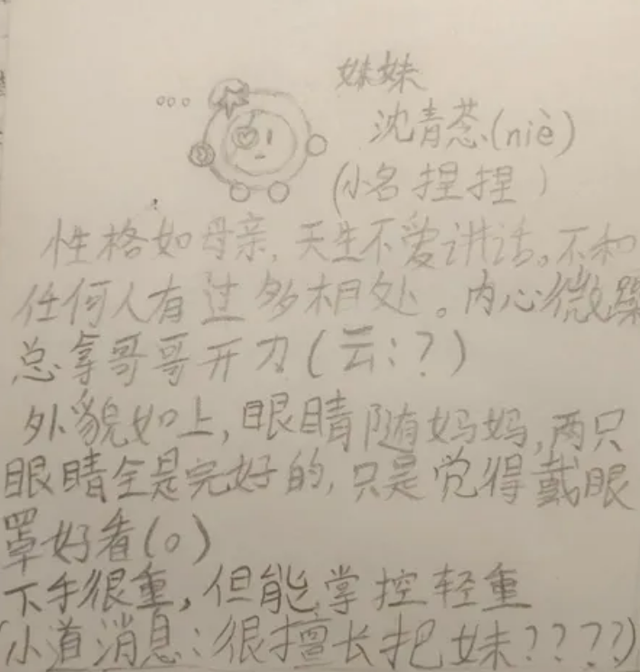 妹妹
沈青苶(niè)
(小名捏捏)
性格如母亲,天生不爱讲话。不和
任何人有过多相处。内心微躁
总拿哥哥开刀(云:?)
外貌如上,眼睛随妈妈,两只
眼睛全是完好的,只是觉得戴眼
罩好看(。)
下手很重,但能掌控轻重
(小道消息:很擅长把妹????)